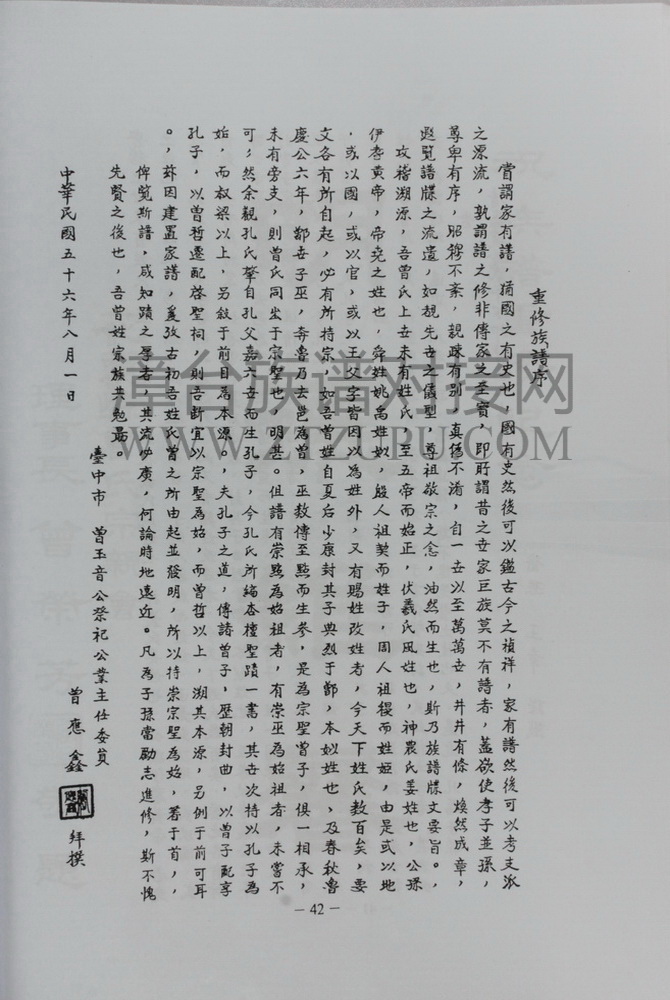 重修族譜序
嘗謂家有譜，猶國之有史也，國有史然後可以鑑古今之禎祥，家有譜然後可以考支派
之源流，孰謂譜之修非傳家之至寶，即所謂昔之世家巨族莫不有譜者，蓋欲使孝子並孫，
尊卑有序，昭穆不紊，親疎有別，真偽不淆，自一世以至萬萬世，井井有條，煥然成章，
遐覽譜牒之流遺，如覩先世之儀型，尊祖敬宗之念，油然而生也，斯乃族譜牒文要旨。，
攻稽溯源，吾曾氏上世未有姓氏，至五帝而始正，伏羲氏風姓也，神農氏姜姓也，公孫
伊耆黃帝，帝堯之姓也，舜姓姚禹姓姒，殷人祖契而姓子，周人祖稷而姓姬，由是或以地
，或以國，或以官，或以王父字皆因以為姓外，又有賜姓改姓者，今天下姓氏數百矣，要
文各有所自起，必有所持宗，如吾曾姓自夏后少康封其子典烈于鄫，本姒姓也，及春秋魯
慶公六年，鄫世子巫，奔魯乃去邑為曾，巫数傳至點而生參，是為宗聖曾子，俱一相承，
未有旁支，則曾氏同出于宗聖也，明甚。但譜有崇點為始祖者，有崇巫為始祖者，未嘗不
可，然余觀孔氏肇自孔父嘉六世而生孔子，今孔氏所緒杏檀聖蹟一書，其世次特以孔子為
始，而叔梁以上，另敍于前目為本源，夫孔子之道，傳諸曾子，歷朝封曲，以曾子配享
孔子，以曾晳遷配啓聖祠，則吾斷宜以宗聖為始，而曾晳以上，溯其本源，另例于前可耳
。茲因建置家譜，爰攷古初吾姓氏曾之所由起並發明，所以特崇宗聖為始，著于首，，
俾覧斯譜，咸知蹟之厚者，其流必廣，何論時地遠近。凡為子孫當励志進修，斯不愧
先賢之後也，吾曾姓宗族共勉旃。
臺中市　曾玉音公祭祀公業主任委員
曾應鑫　拜撰
中華民國五十六年八月一日
－42－
壹台族谱对接网
WWW.ZTZUPU.COM